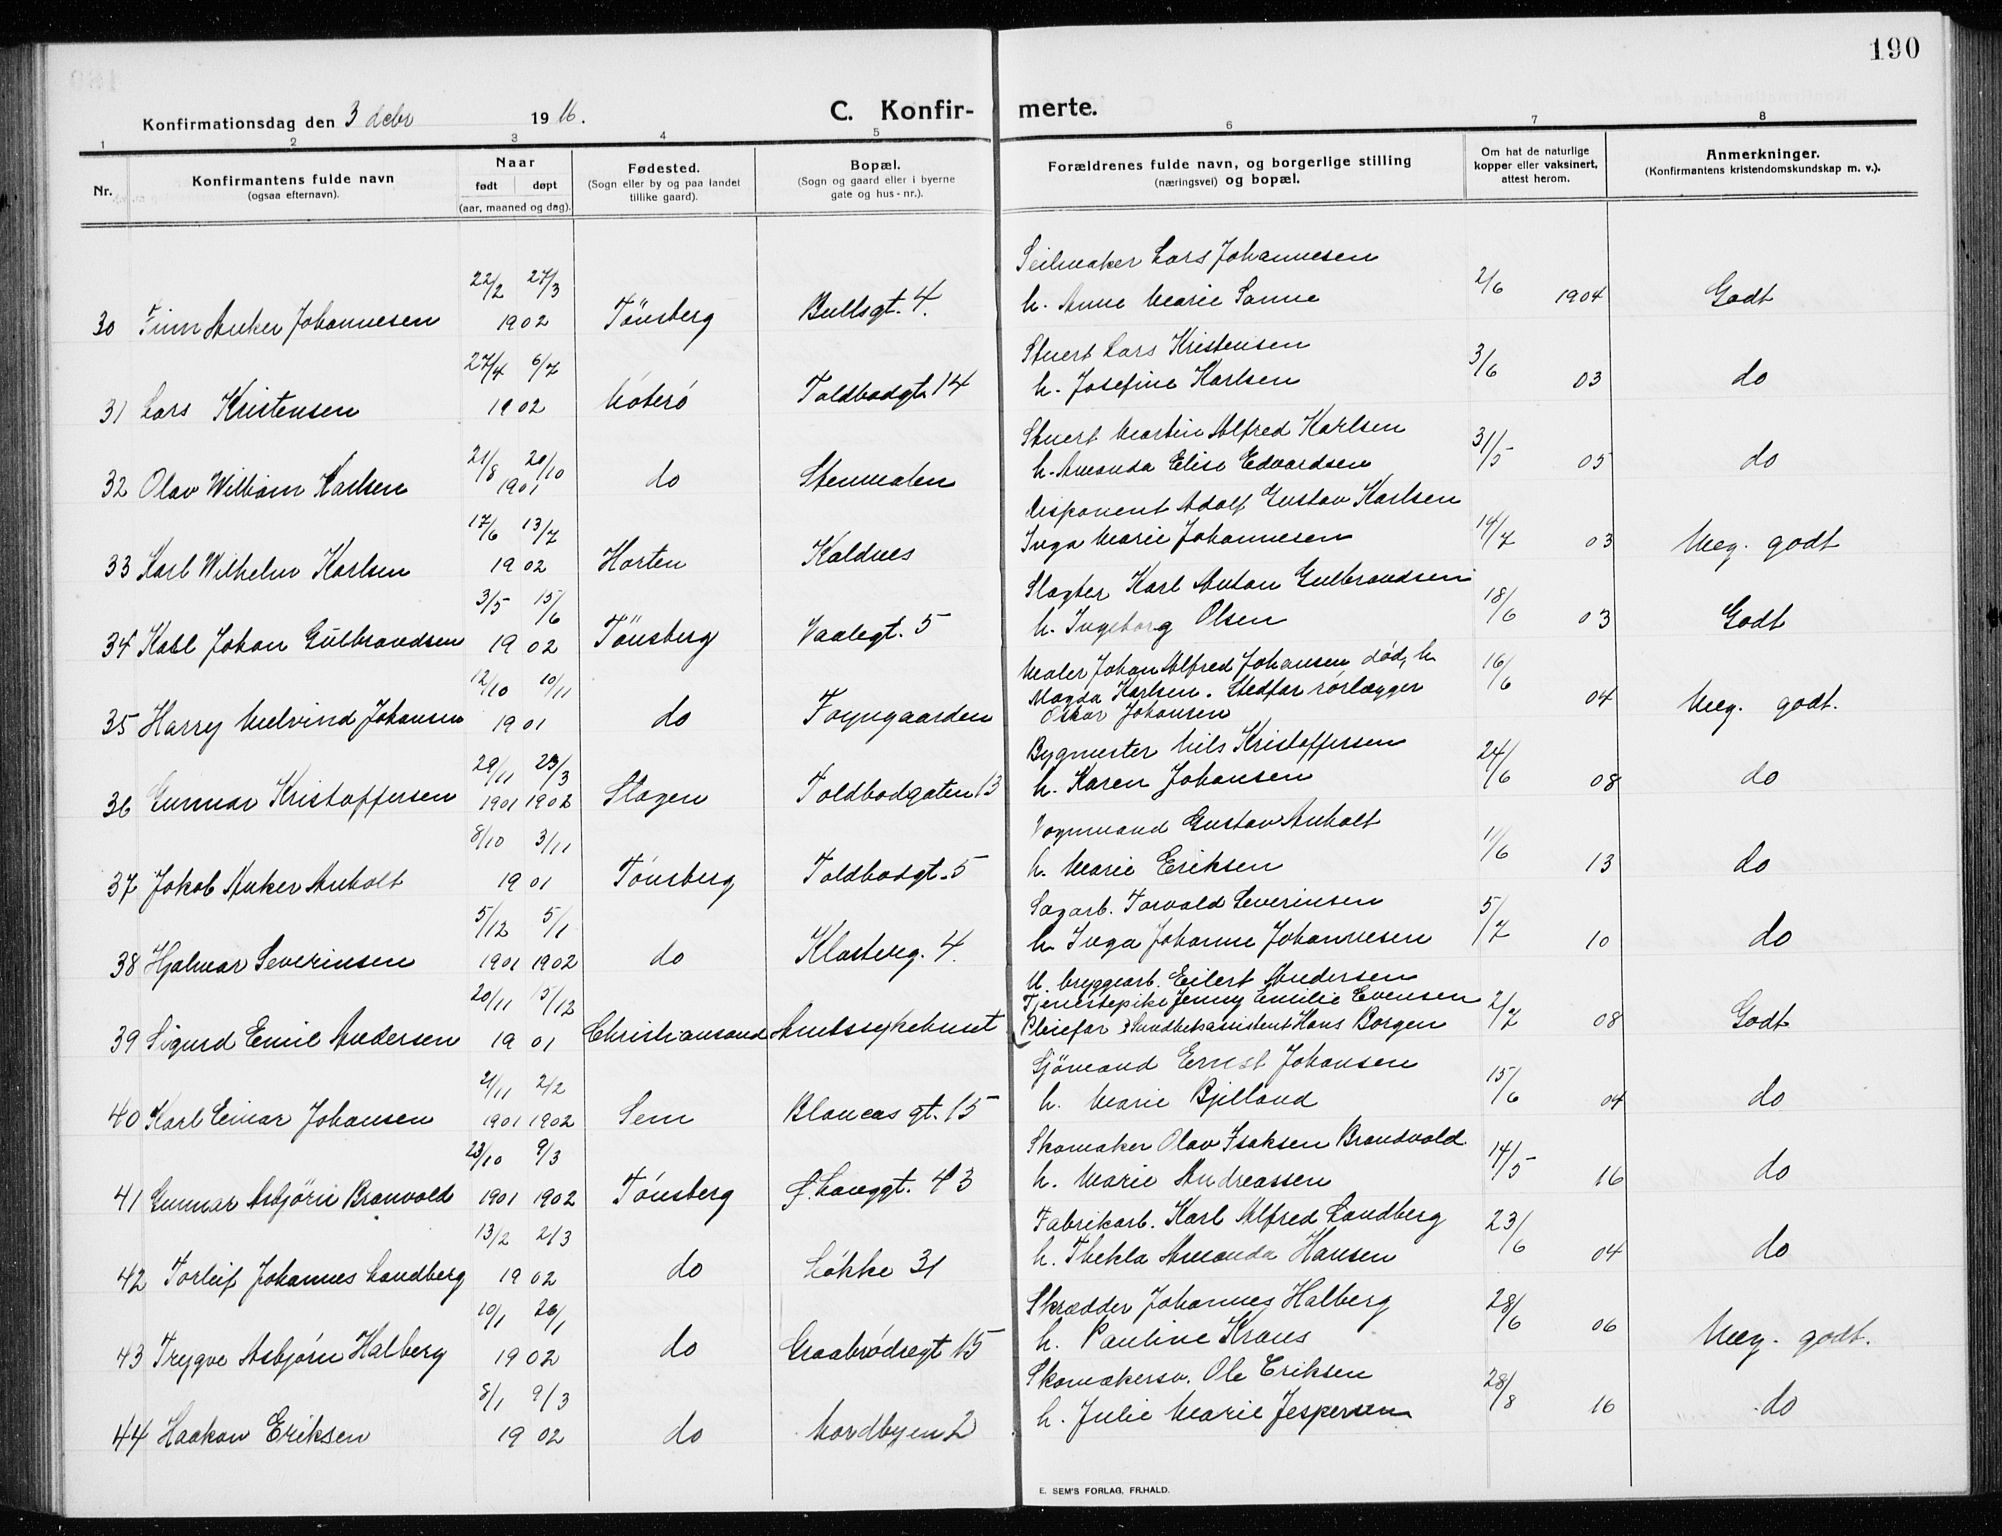 190
Konfirmationsdag den 3 debr 1916.
C. Konfir-merte.
1 2 3 4 5 6 7 8
Nr.
Konfirmantens fulde navn
(ogsaa efternavn).
Naar
født døpt
(aar, maaned og dag).
Fødested.
(Sogn eller by og paa landet
tillike gaard).
Bopæl.
(Sogn og gaard eller i byerne
gate og hus-nr.).
Forældrenes fulde navn, og borgerlige stilling
(næringsvei) og bopæl.
Om hat de naturlige
kopper eller vaksinert,
attest herom.
Anmerkninger.
(Konfirmantens kristendomskundskap m. v.).
22/2 27/3 Seilmaker Lars Johannesen
30 Finn Anker Johannesen 1902 Tönsberg Bullsgt. 4. h. Anne Marie Sanne 2/6 1904 Godt
27/4 6/7 Stuert Lars Kristensen
31 Lars Kristensen 1902 Nöterö Toldbodgt. 14 h. Josefine Karlsen 3/6 03 do
21/8 20/10 Stuert Martin Alfred Karlsen
32 Olav William Karlsen 1901 do Stenmalen h. Amanda Elise Edvardsen 31/5 05 do
17/6 13/7 Disponent Adolf Gustav Karlsen
33 Karl Wilhelm Karlsen 1902 Horten Kaldnes Inga Marie Johannesen 14/7 03 Meg. godt
3/5 15/6 Slagter Karl Anton Gulbrandsen
34 Karl Johan Gulbrandsen 1902 Tönsberg Vaalegt. 5 h. Ingeborg Olsen 18/6 03 Godt
12/10 10/11 Maler Johan Alfred Johansen död, h.
Magda Karlsen. Stedfar rörlægger
35 Harry Melvind Johansen 1901 do Foyngaarden Oskar Johansen 16/6 04 Meg. godt.
29/11 23/3 Bygmester Nils Kristoffersen
36 Gunnar Kristoffersen 1901 1902 Slagen Toldbodgaten 13 h. Karen Johansen 24/6 08 do
8/10 3/11 Vognmand Gustav Anholt
37 Jakob Anker Anholt 1901 Tönsberg Toldbodgt. 5 h. Marie Eriksen 1/6 13 do
5/12 5/1 Sagarb. Torvald Severinsen
38 Hjalmar Severinsen 1901 1902 do Klosterg. 4. h. Inga Johanne Johannesen 5/7 10 do
20/11 15/12 U. bryggearb. Eilert Andersen
Tjenestepike Jenny Emilie Evensen
39 Sigurd Emil Andersen 1901 Christiansand Amtssykehuset Pleiefar Hans Borgen 2/7 08 Godt
21/11 2/2 Sjömand Ernst Johansen
40 Karl Einar Johansen 1901 1902 Sem Blancas gt. 15 h. Marie Bjelland 15/6 04 do
23/10 9/3 Skomaker Olav Isaksen Brandvold
41 Gunnar Asbjörn Branvold 1901 1902 Tönsberg Ø. Langgt. 43 h. Marie Andreassen 14/5 16 do
13/2 2/3 Fabrikarb. Karl Alfred Landberg
42 Torleif Johannes Landberg 1902 do Lökke 31 h. Thekla Amanda Hansen 23/6 04 do
10/1 26/1 Skrædder Johannes Halberg
43 Trygve Asbjørn Halberg 1902 do Graabrödregt 15 h. Pauline Kraus 28/6 06 Meg. godt.
8/1 9/3 Skomakersv. Ole Eriksen
44 Haakon Eriksen 1902 do Nordbyen 2 h. Julie Marie Jespersen 28/8 16 do
E. SEM'S FORLAG, FR.HALD.